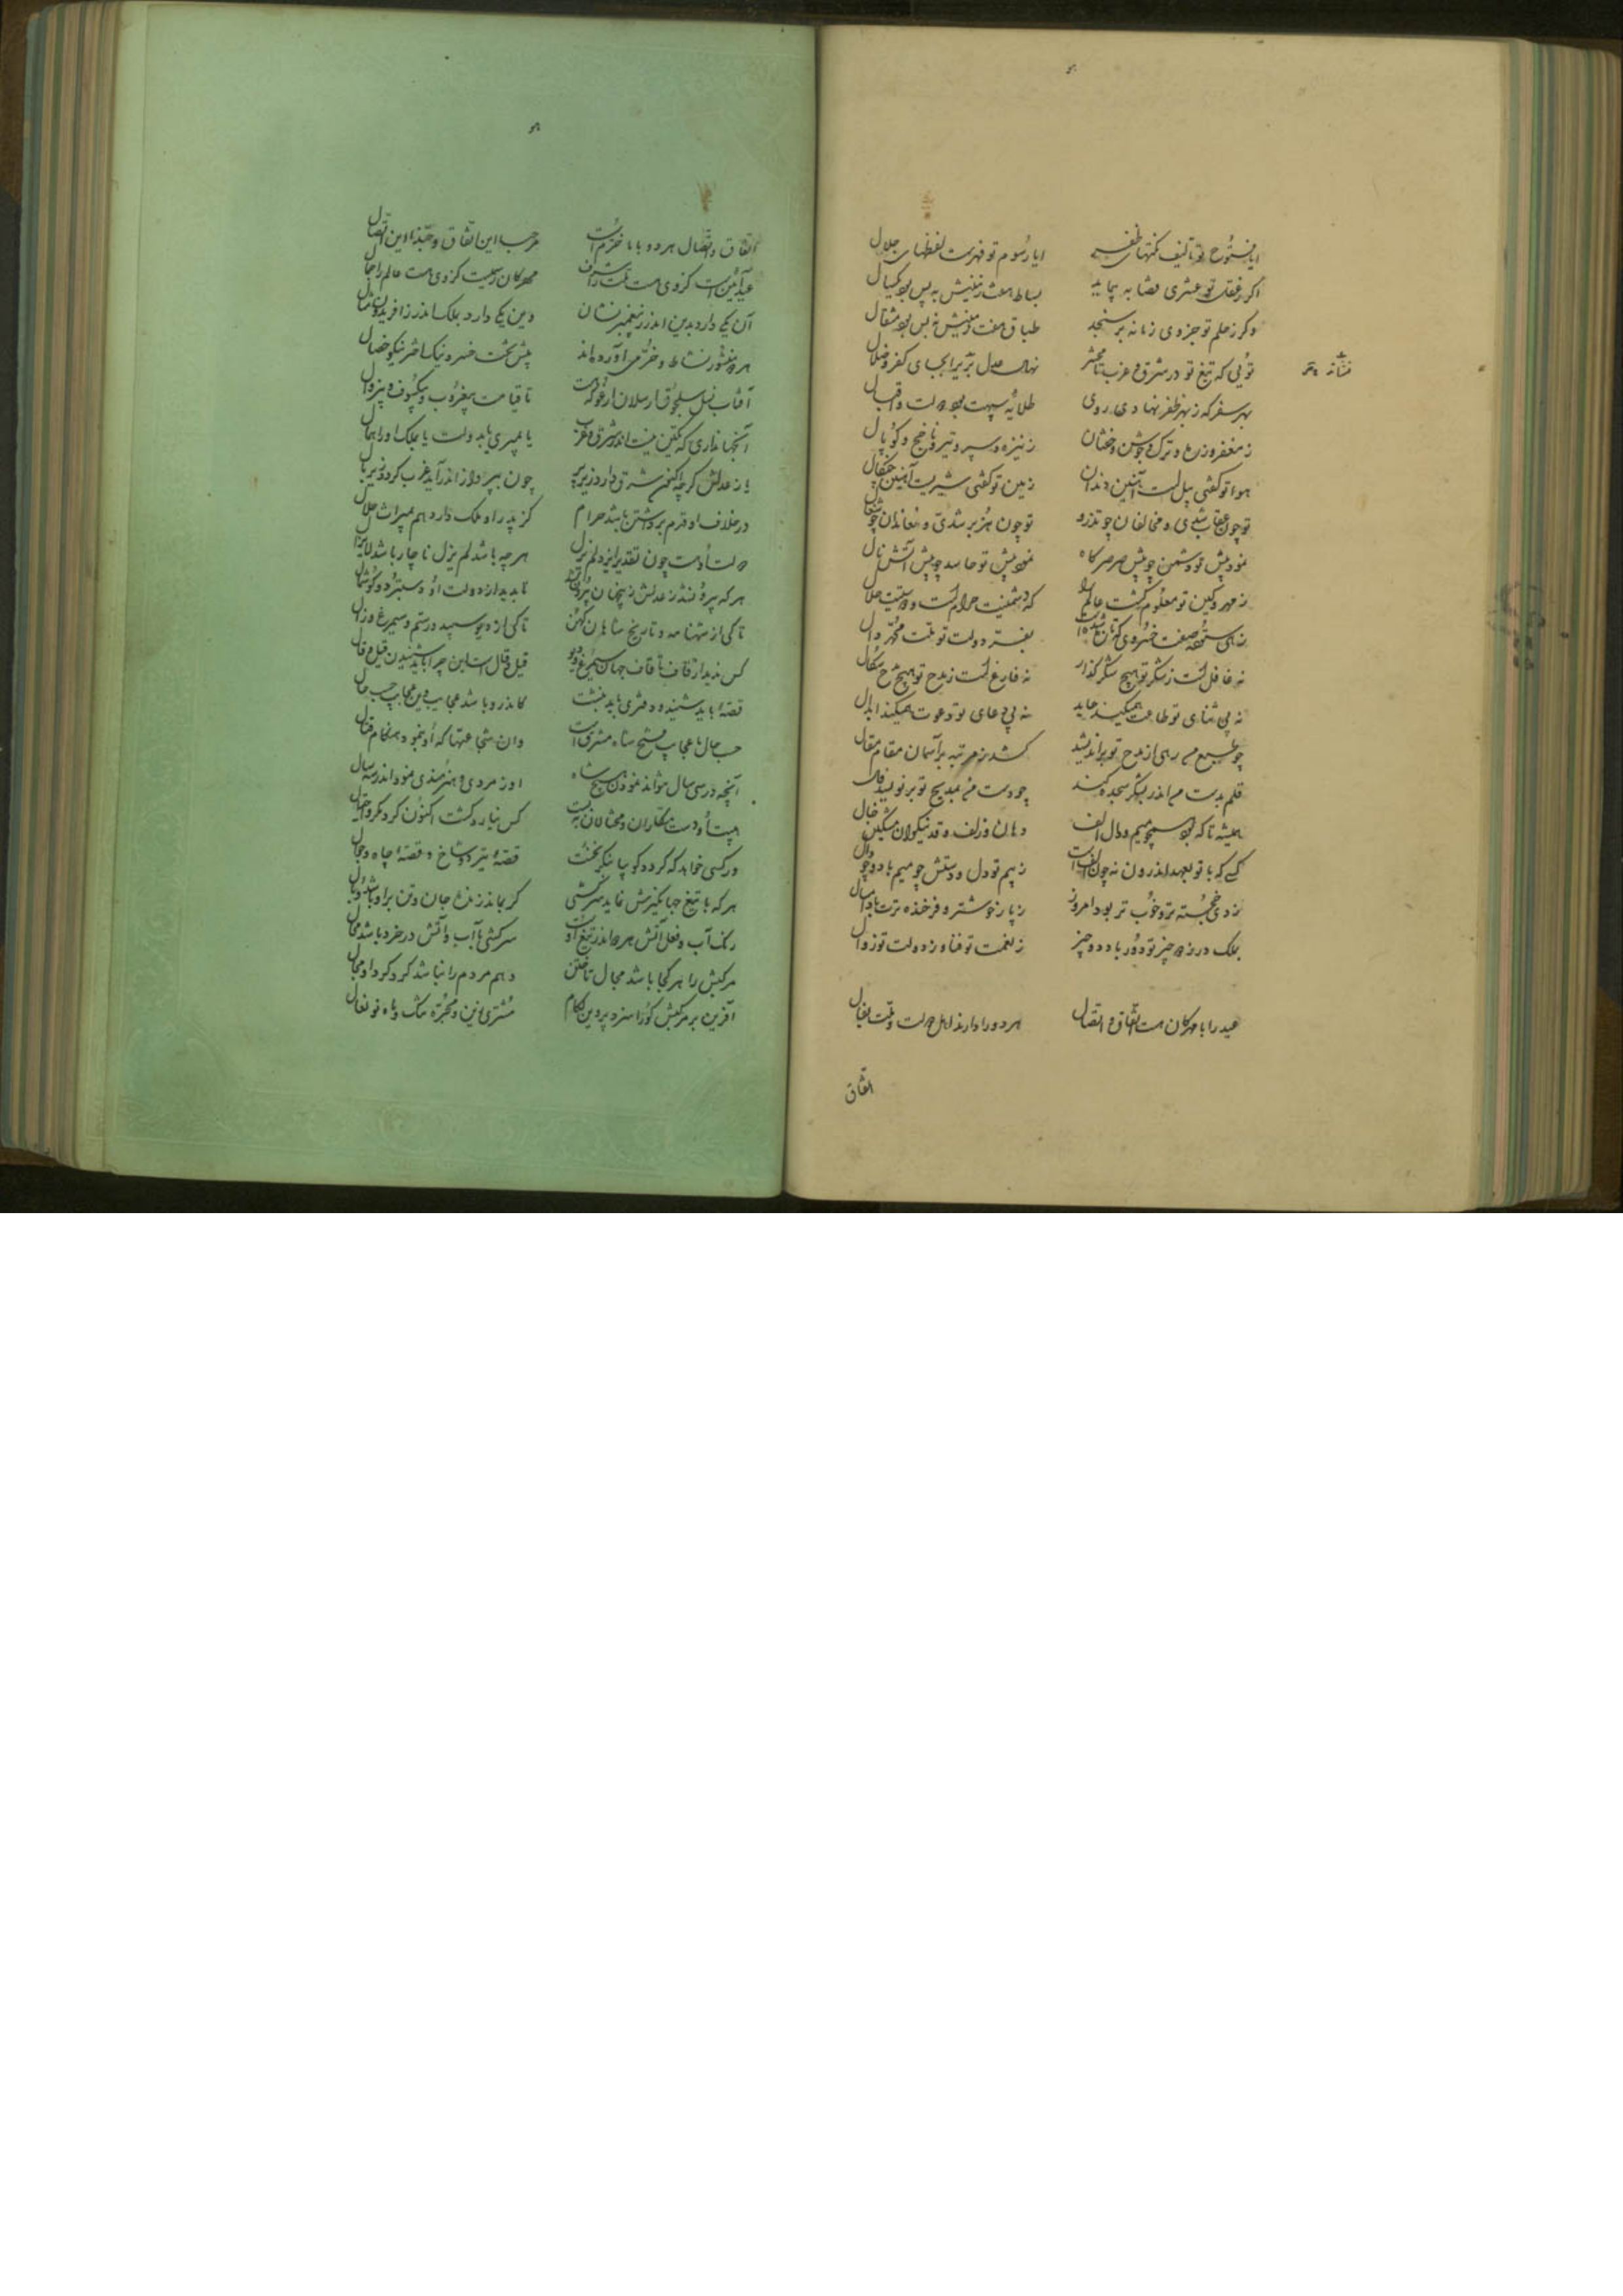 ایا فتوح تو تألیف نکتهای ظفر ایا رسوم تو فهرست لفظهای جلال
اگر ز عقل تو عشری قضا به پیماید بساط هفت زمینش نه بس بود کیال
وگر ز حلم تو جزوی زمانه برسنجد طباق هفت زمینش نه بس بود مثقال
تویی که تیغ تو در مشرق و مغرب تا محشر نهال عدل بجای کفر و ضلال
بهر سفر که ز بهر ظفر نهادی روی طلایه سپهت بود دولت و اقبال
ز مغفر و زره و ترک و جوشن و خفتان ز نیزه و سپر و تیر و ناچخ و کوپال
هوا تو گفتی پیلیست آهنین دندان زمین تو گفتی شیریست آهنین چنگال
تو چون عقاب شدی و مخالفان چو تذرو تو چون هزبر شدی و معاندان چو شغال
نمود پیش تو دشمن چو پیش صرصر کاه نمود پیش تو حاسد چو پیش آتش نال
ز مهر و کین تو معلوم گشت عالم را که دشمنیت حرام است و دوستیت حلال
زهی ستوده صفت خسروی که تازه شدست بفر دولت تو ملت محمد و آل
نه غافل است ز شکر تو هیچ شکرگذار نه فارغ است ز مدح تو هیچ مدح سگال
نه بی ثنای تو طاعت همیکند عابد نه بی دعای تو دعوت همیکند ابدال
چو طبع من رهی از مدح تو براندیشد کشد ز مرتبه بر آسمان مقام مقال
قلم بدست من اندر بشکر سجده کند چو دست من بمدیح تو برنویسد فال
همیشه تا که بود همچو میم و دال و الف دهان و زلف و قد نیکوان مشکین خال
کسی که با تو بعهد اندرون نه چون الفست ز بیم تو دل و پشتش چو میم باد و چو دال
ز دی خجسته‌تر و خوب‌تر بود امروز ز پار خوشتر و فرخنده‌ترت بادا سال
بلک در ز دو چیز تو دور باد دو چیز ز نعمت تو فنا و ز دولت تو زوال
عید را با مهرگان هست اتفاق و اتصال هر دو را دارند اهل دولت و ملت بفال
اتفاق
اتفاق و اتصال هر دو با ما خرم است مرحبا این اتفاق و حبذا این اتصال
عید آئین است کز وی هست ملت را شرف مهرگان رسمیست کز وی هست عالم را جمال
آن یکی دارد بدین اندر ز پیغمبر نشان وین یکی دارد بملک اندر ز افریدون مثال
هر دو منشور نشاط و خرمی آورده‌اند پیش تخت خسرو نیک اختر نیکو خصال
آفتاب نسل سلجوق ارسلان ارغو که هست تا قیامت بیغروب و بیکسوف و بیزوال
آنجهانداری که نگین نیست اندر شرق و غرب یا بمیری یا بدولت یا بملک او را همال
باز عدلش گرچه اکنون شرق دارد زیر پر چون بپرواز اندر آید غرب گردد زیر بال
در خلاف او قدم برداشتن باشد حرام کز پدر او ملک دارد هم بمیراث حلال
دولت او هست چون تقدیر ایزد لم یزل هرچه باشد لم یزل ناچار باشد لایزال
تا کی از شهنامه و تاریخ شاهان کهن تا کی از دیو سپید و رستم و سیمرغ و زال
کس ندید از قاف تا قاف جهان سیمرغ و دیو قیل و قال است این چرا باید شنیدن قیل و قال
قصه باید شنید و دفتری باید نبشت کاندرو باشد عجایب وین عجایب حسب حال
حسب حال ما عجایب فتح شاه مشرق است وان شجاعتها که او بنمود هنگام قتال
آنچه در سی سال نتواند نمودن هیچ شاه او ز مردی و هنرمندی نمود اندر سه سال
پیش او دست مکاران و محتالان ببست کس نیارد گشت اکنون گرد مکر و احتیال
ور کسی خواهد که گردد گو بیا بنگر نخست قصه تیر و شاخ و قصه چاه و جبال
هر که با تیغ جهانگیرش نماید سرکشی گر بماند زنده جان و تن بر او باشد وبال
رنگ آب و فعل آتش هر دو اندر تیغ اوست سرکشی با آب و آتش در خرد باشد محال
مرکبش را هر کجا باشد مجال تاختن وهم مردم را نباشد گرد گرد او مجال
آفرین بر مرکبش کو را سزد پروین لگام مشتری زین و مجره تنگ و ماه نو نعال